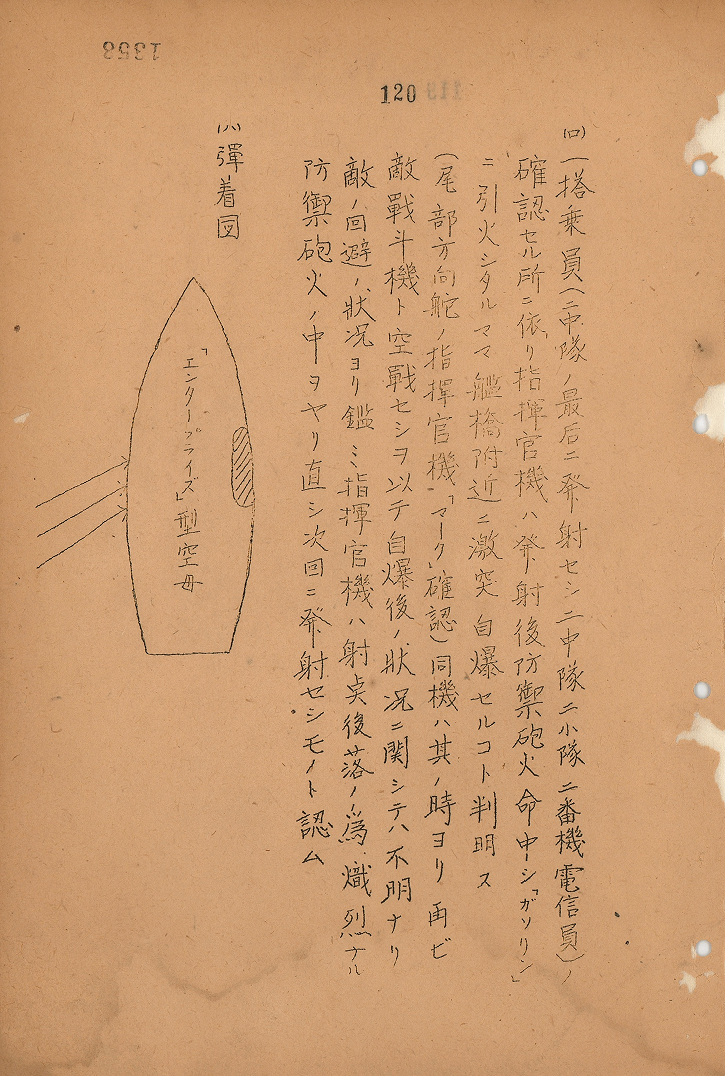 1353
120
119
(ロ) 一搭乗員(二中隊ノ最后ニ発射セシ二中隊二小隊二番機電信員)ノ
確認セル所ニ依リ指揮官機ハ発射後防禦砲火命中シ「ガソリン」
ニ引火シタルママ艦橋附近ニ激突自爆セルコト判明ス
(尾部方向舵ノ指揮官機「マーク」確認)同機ハ其ノ時ヨリ再ビ
敵戰斗機ト空戰セシヲ以テ自爆後ノ狀况ニ関シテハ不明ナリ
敵ノ回避ノ狀況ヨリ鑑ミ指揮官機ハ射点後落ノ為熾烈ナル
防禦砲火ノ中ヲヤリ直シ次回ニ発射セシモノト認ム
(ハ) 彈着図
「エンタープライズ」型空母